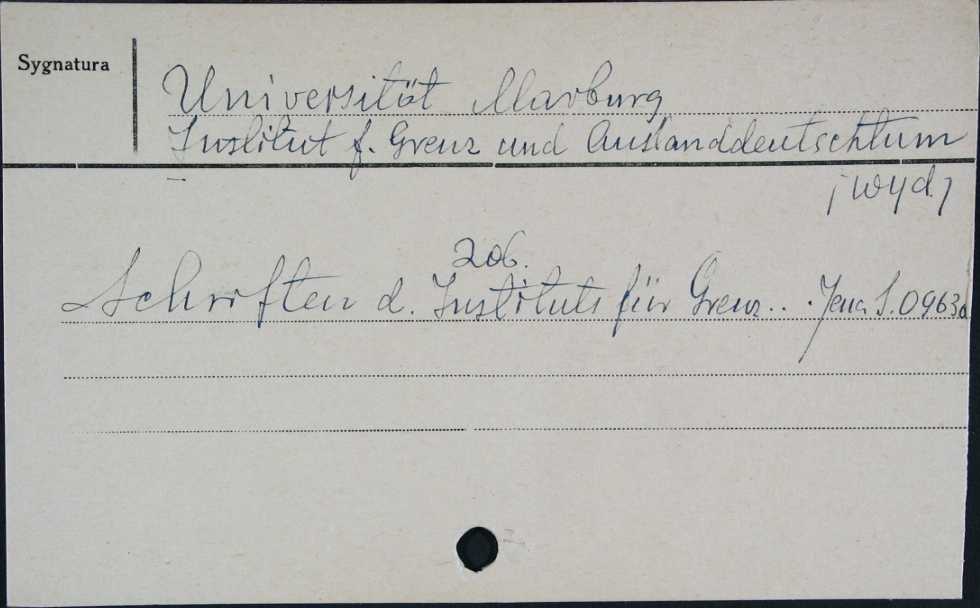 Sygnatura
Universität Marburg
Institut f. Grenz und Auslanddeutschtum
[wyd.]
Zob.
Schriften d. Instituts für Grenz... Jena S. 0963d